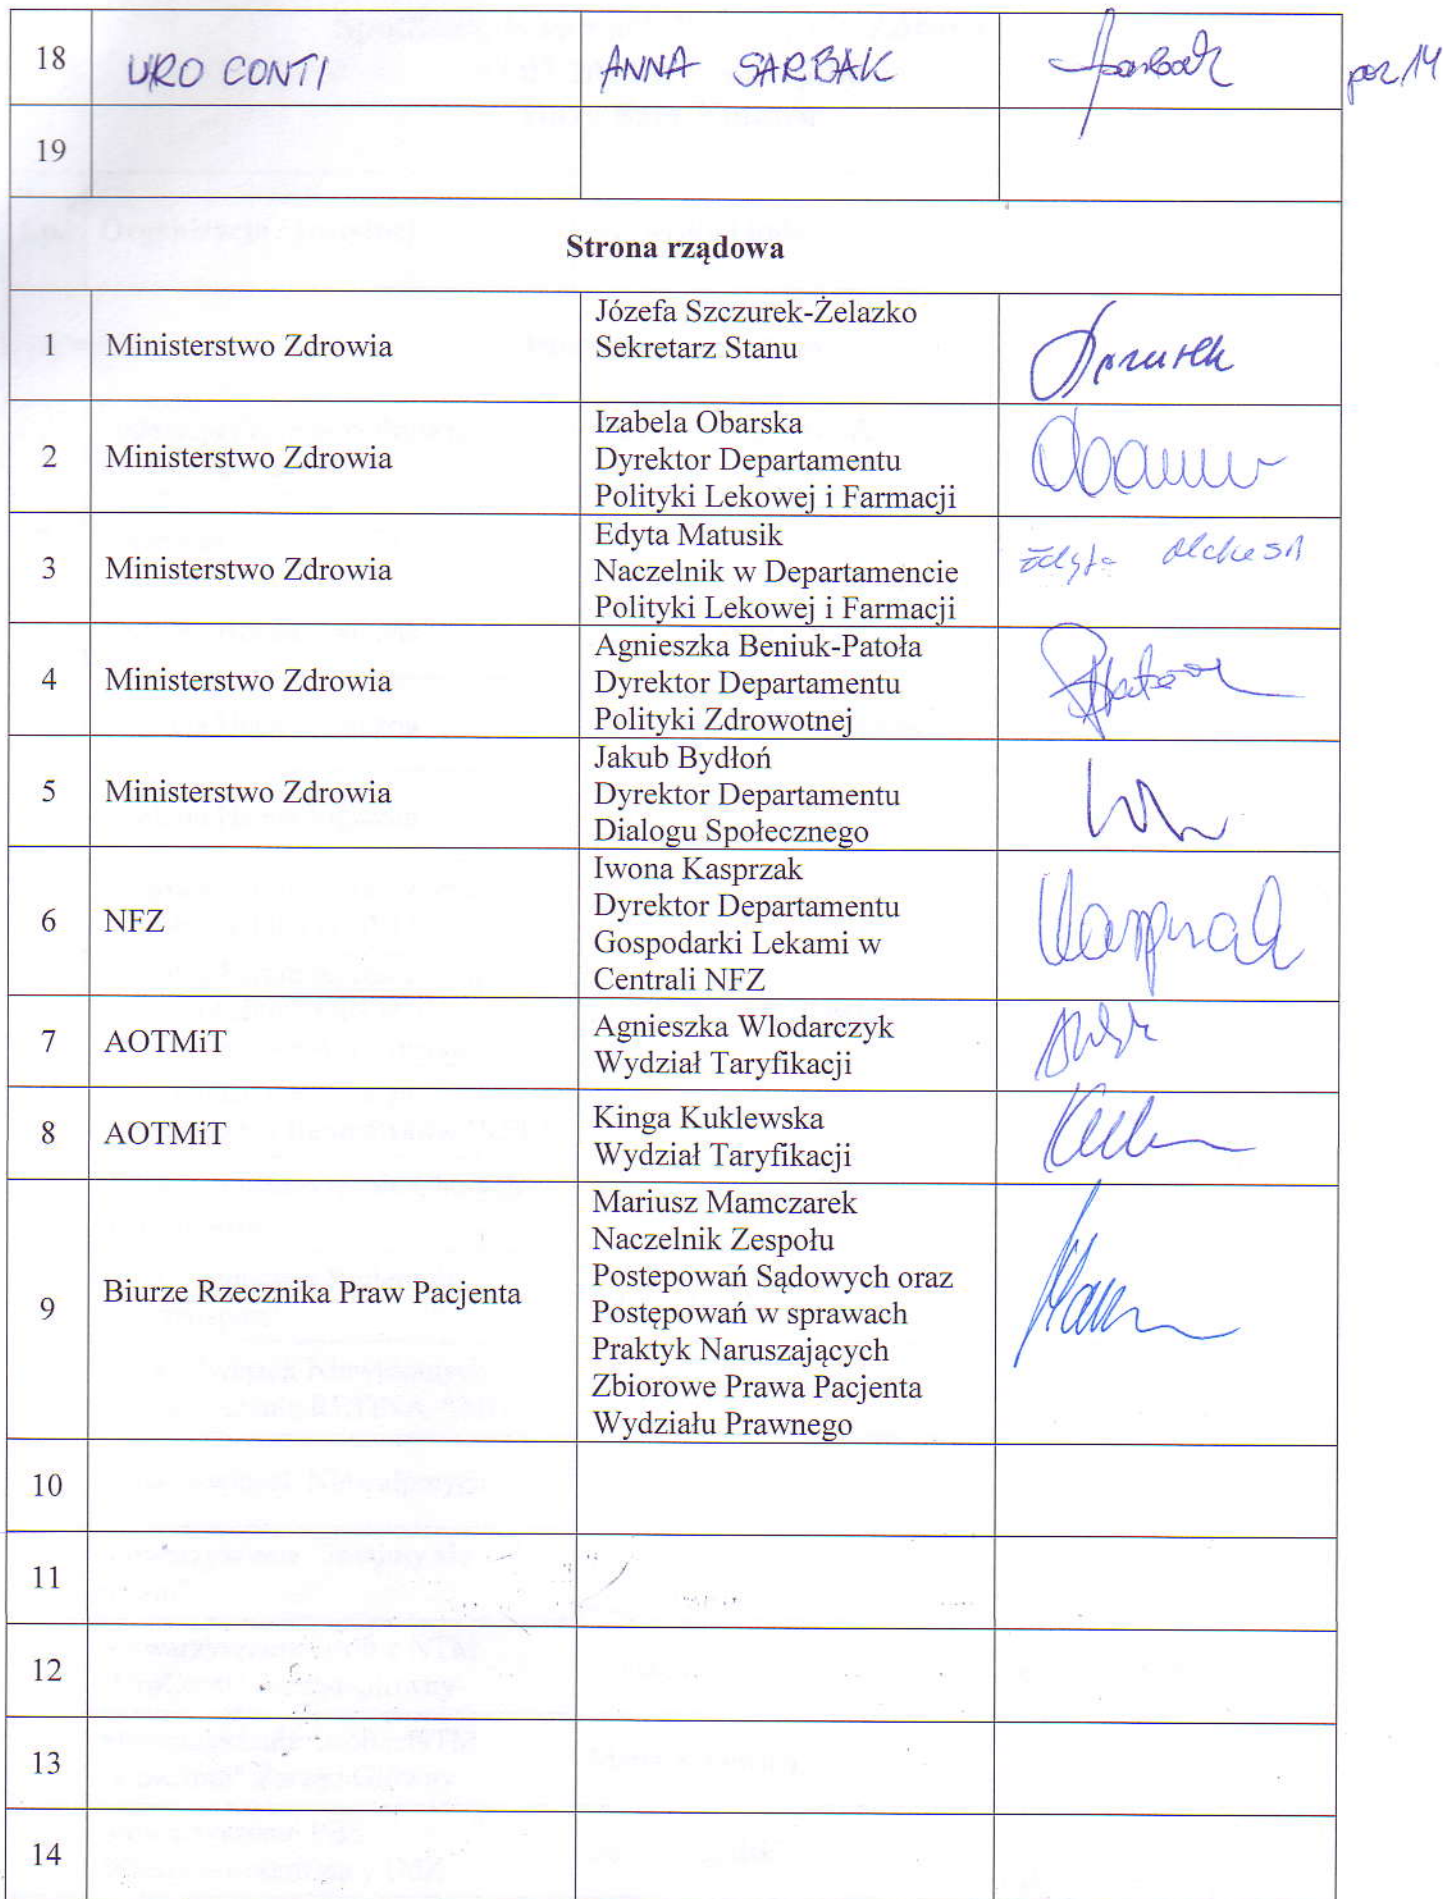 18 URO CONTI ANNA SARBAK Sarbak poz. 14
19
Strona rządowa
1 Ministerstwo Zdrowia Józefa Szczurek-Żelazko
Sekretarz Stanu
2 Ministerstwo Zdrowia Izabela Obarska
Dyrektor Departamentu
Polityki Lekowej i Farmacji
3 Ministerstwo Zdrowia Edyta Matusik
Naczelnik w Departamencie
Polityki Lekowej i Farmacji
4 Ministerstwo Zdrowia Agnieszka Beniuk-Patoła
Dyrektor Departamentu
Polityki Zdrowotnej
5 Ministerstwo Zdrowia Jakub Bydłoń
Dyrektor Departamentu
Dialogu Społecznego
6 NFZ Iwona Kasprzak
Dyrektor Departamentu
Gospodarki Lekami w
Centrali NFZ
Kasprzak
7 AOTMiT Agnieszka Wlodarczyk
Wydział Taryfikacji
8 AOTMiT Kinga Kuklewska
Wydział Taryfikacji
9 Biurze Rzecznika Praw Pacjenta Mariusz Mamczarek
Naczelnik Zespołu
Postepowań Sądowych oraz
Postępowań w sprawach
Praktyk Naruszających
Zbiorowe Prawa Pacjenta
Wydziału Prawnego
10
11
12
13
14